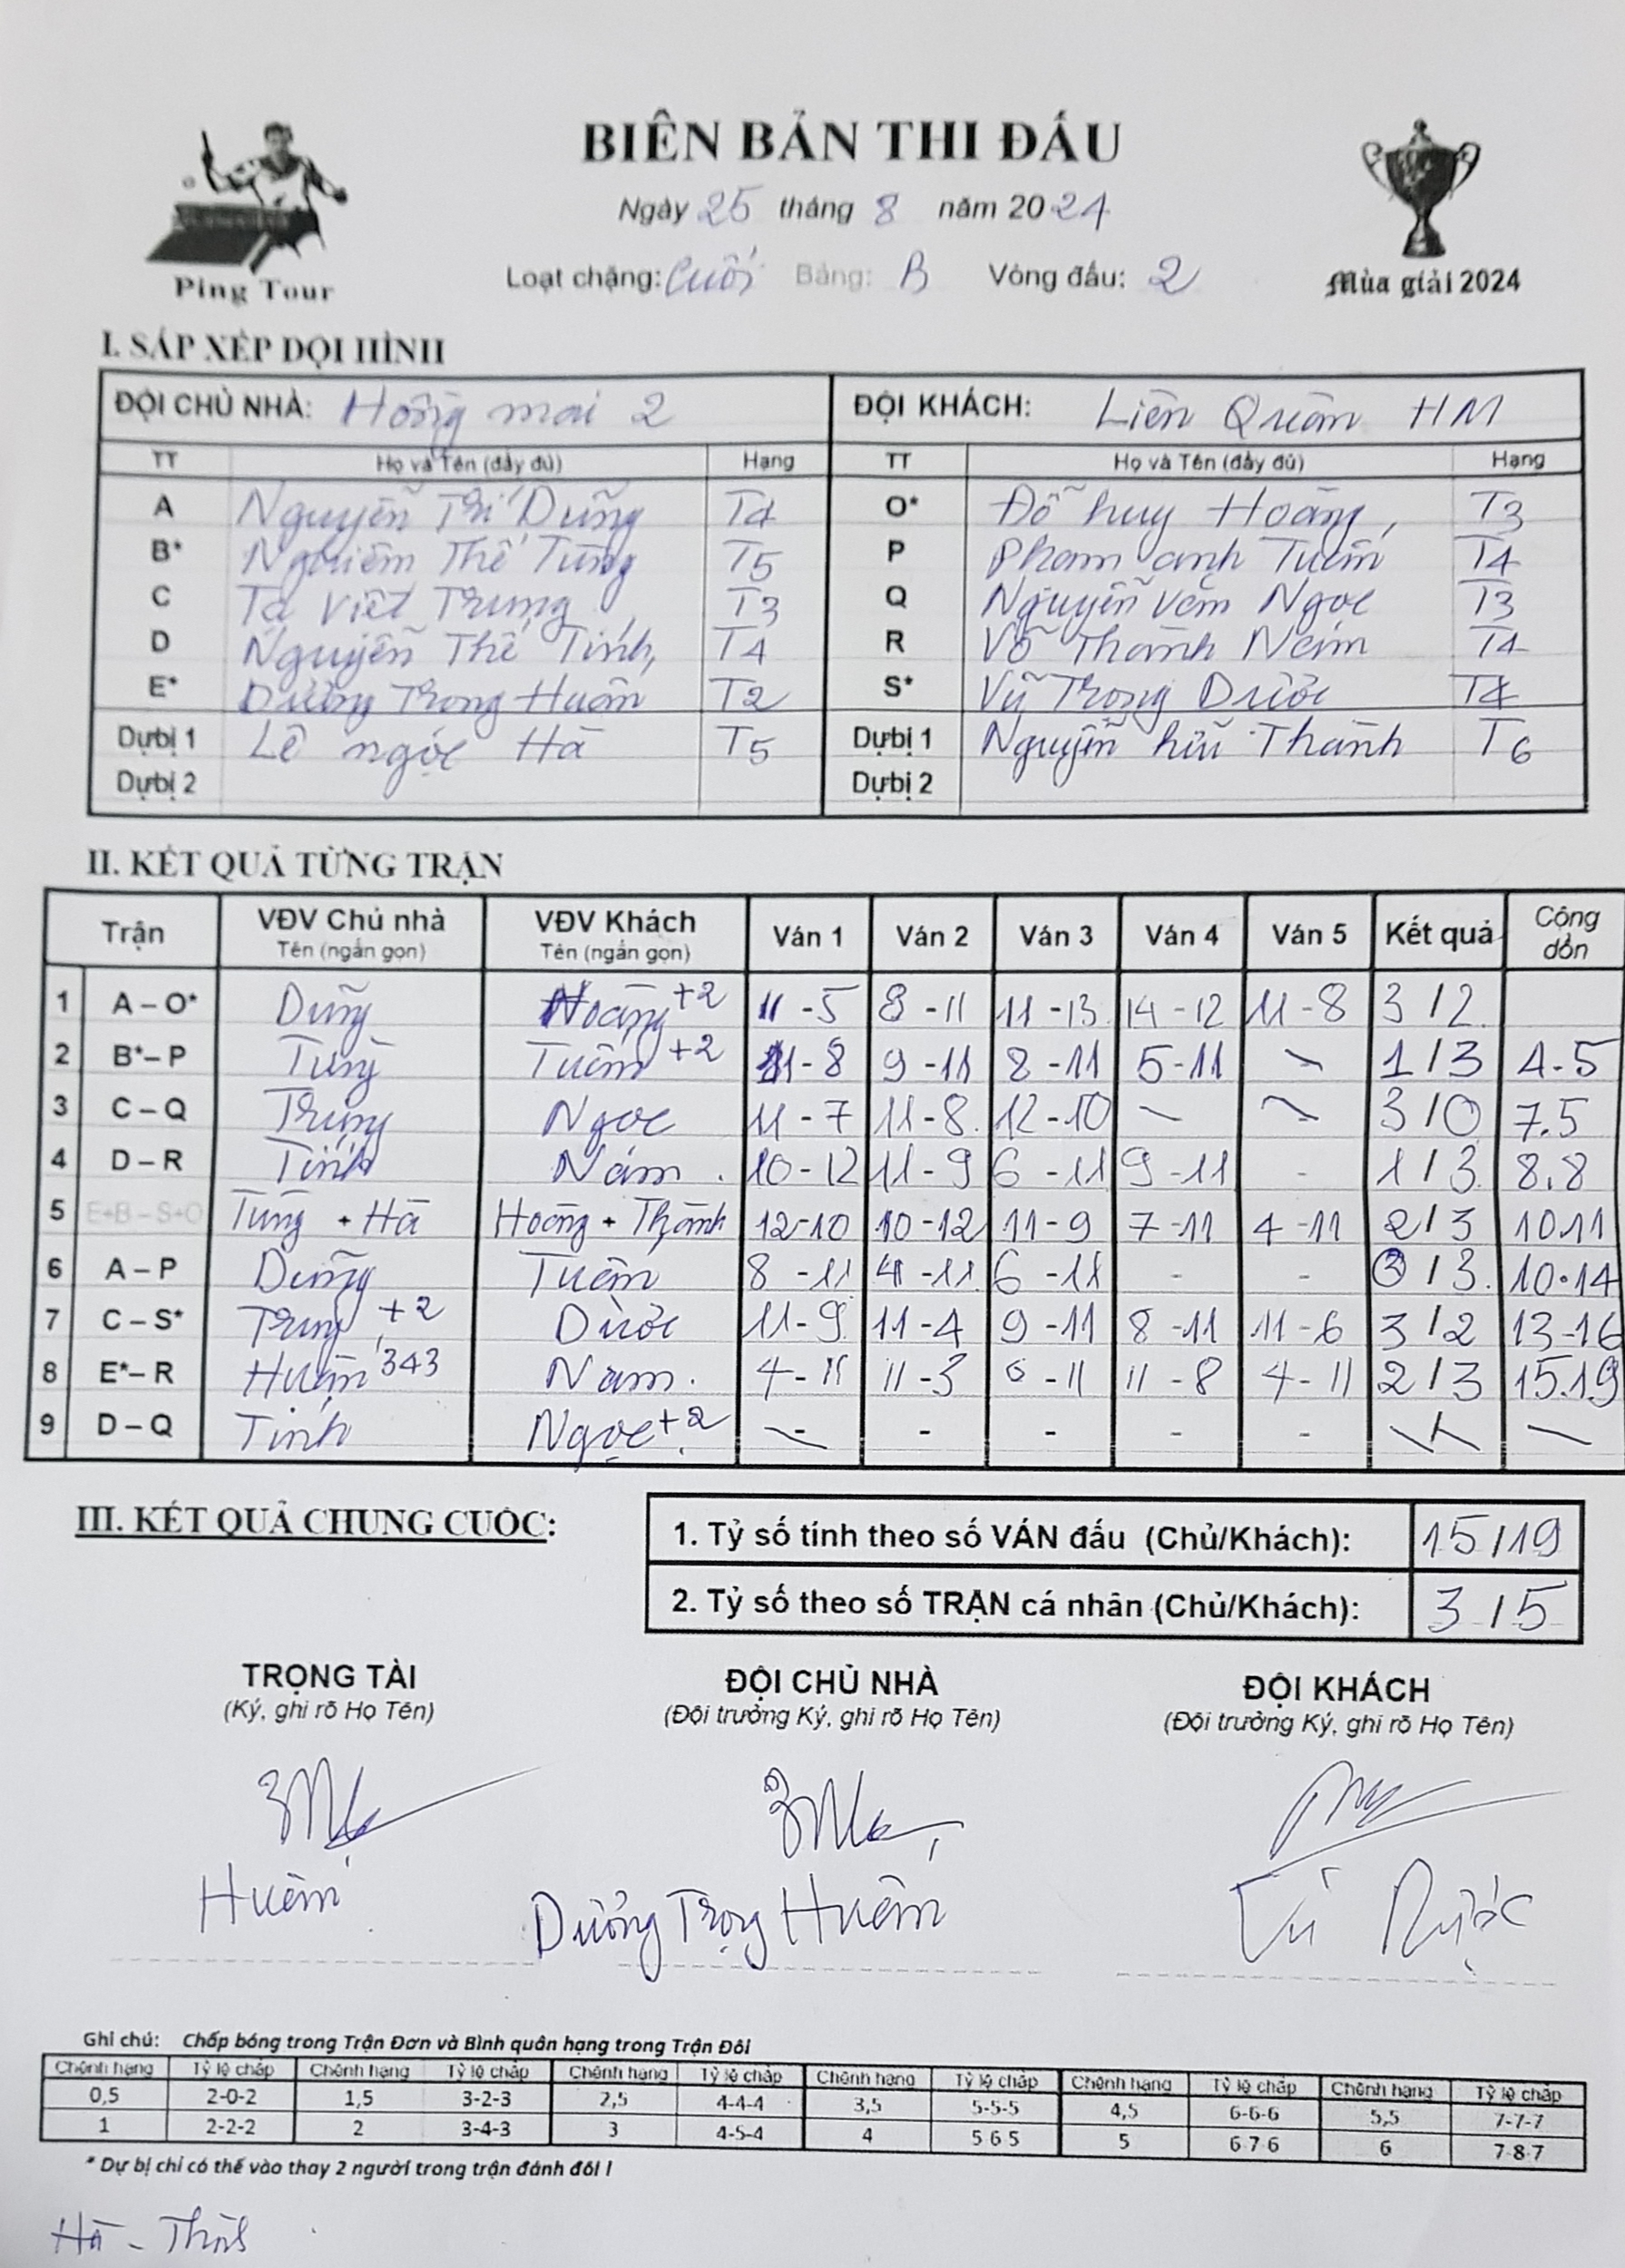 BIÊN BẢN THI ĐẤU
Ngày 25 tháng 8 năm 2024
Ping Tour
Loạt chặng: Cuối Bảng: B Vòng đấu: 2
Mùa giải 2024
I. SẮP XẾP ĐỘI HÌNH
ĐỘI CHỦ NHÀ: Hồng mai 2 ĐỘI KHÁCH: Liên Quân HM
TT Họ và Tên (đầy đủ) Hạng TT Họ và Tên (đầy đủ) Hạng
A Nguyễn Trí Dũng T4 O* Đỗ huy Hoàng T3
B* Nghiêm Thế Tùng T5 P Phạm anh Tuấn T4
C Tạ Việt Trung T3 Q Nguyễn văn Ngọc T3
D Nguyễn Thế Tính T4 R Võ Thành Nam T4
E* Dương Trọng Huân T2 S* Vũ Trọng Dược T4
Dự bị 1 Lê ngọc Hà T5 Dự bị 1 Nguyễn hữu Thành T6
Dự bị 2 Dự bị 2
II. KẾT QUẢ TỪNG TRẬN
Trận VĐV Chủ nhà Tên (ngắn gọn) VĐV Khách Tên (ngắn gọn) Ván 1 Ván 2 Ván 3 Ván 4 Ván 5 Kết quả Cộng dồn
1 A – O* Dũng Hoàng +2 11 - 5 8 - 11 11 - 13 14 - 12 11 - 8 3 / 2
2 B* – P Tùng Tuấn +2 11 - 8 9 - 11 8 - 11 5 - 11 - 1 / 3 4-5
3 C – Q Trung Ngọc 11 - 7 11 - 8 12 - 10 - - 3 / 0 7.5
4 D – R Tính Nam 10 - 12 11 - 9 6 - 11 9 - 11 - 1 / 3 8.8
5 E+B – S+O Tùng + Hà Hoàng + Thành 12 - 10 10 - 12 11 - 9 7 - 11 4 - 11 2 / 3 10.11
6 A – P Dũng Tuấn 8 - 11 4 - 11 6 - 11 - - 0 / 3 10.14
7 C – S* Trung +2 Dược 11 - 9 11 - 4 9 - 11 8 - 11 11 - 6 3 / 2 13-16
8 E* – R Huân 343 Nam 4 - 11 11 - 3 6 - 11 11 - 8 4 - 11 2 / 3 15.19
9 D – Q Tính Ngọc +2 - - - - - / -
III. KẾT QUẢ CHUNG CUỘC:
1. Tỷ số tính theo số VÁN đấu (Chủ/Khách): 15 / 19
2. Tỷ số theo số TRẬN cá nhân (Chủ/Khách): 3 / 5
TRỌNG TÀI ĐỘI CHỦ NHÀ ĐỘI KHÁCH
(Ký, ghi rõ Họ Tên) (Đội trưởng Ký, ghi rõ Họ Tên) (Đội trưởng Ký, ghi rõ Họ Tên)
Huân Dương Trọng Huân Vũ Dược
Ghi chú: Chấp bóng trong Trận Đơn và Bình quân hạng trong Trận Đôi
Chênh hạng Tỷ lệ chấp Chênh hạng Tỷ lệ chấp Chênh hạng Tỷ lệ chấp Chênh hạng Tỷ lệ chấp Chênh hạng Tỷ lệ chấp Chênh hạng Tỷ lệ chấp
0,5 2-0-2 1,5 3-2-3 2,5 4-4-4 3,5 5-5-5 4,5 6-6-6 5,5 7-7-7
1 2-2-2 2 3-4-3 3 4-5-4 4 5-6-5 5 6-7-6 6 7-8-7
* Dự bị chỉ có thể vào thay 2 người trong trận đánh đôi !
Hà -